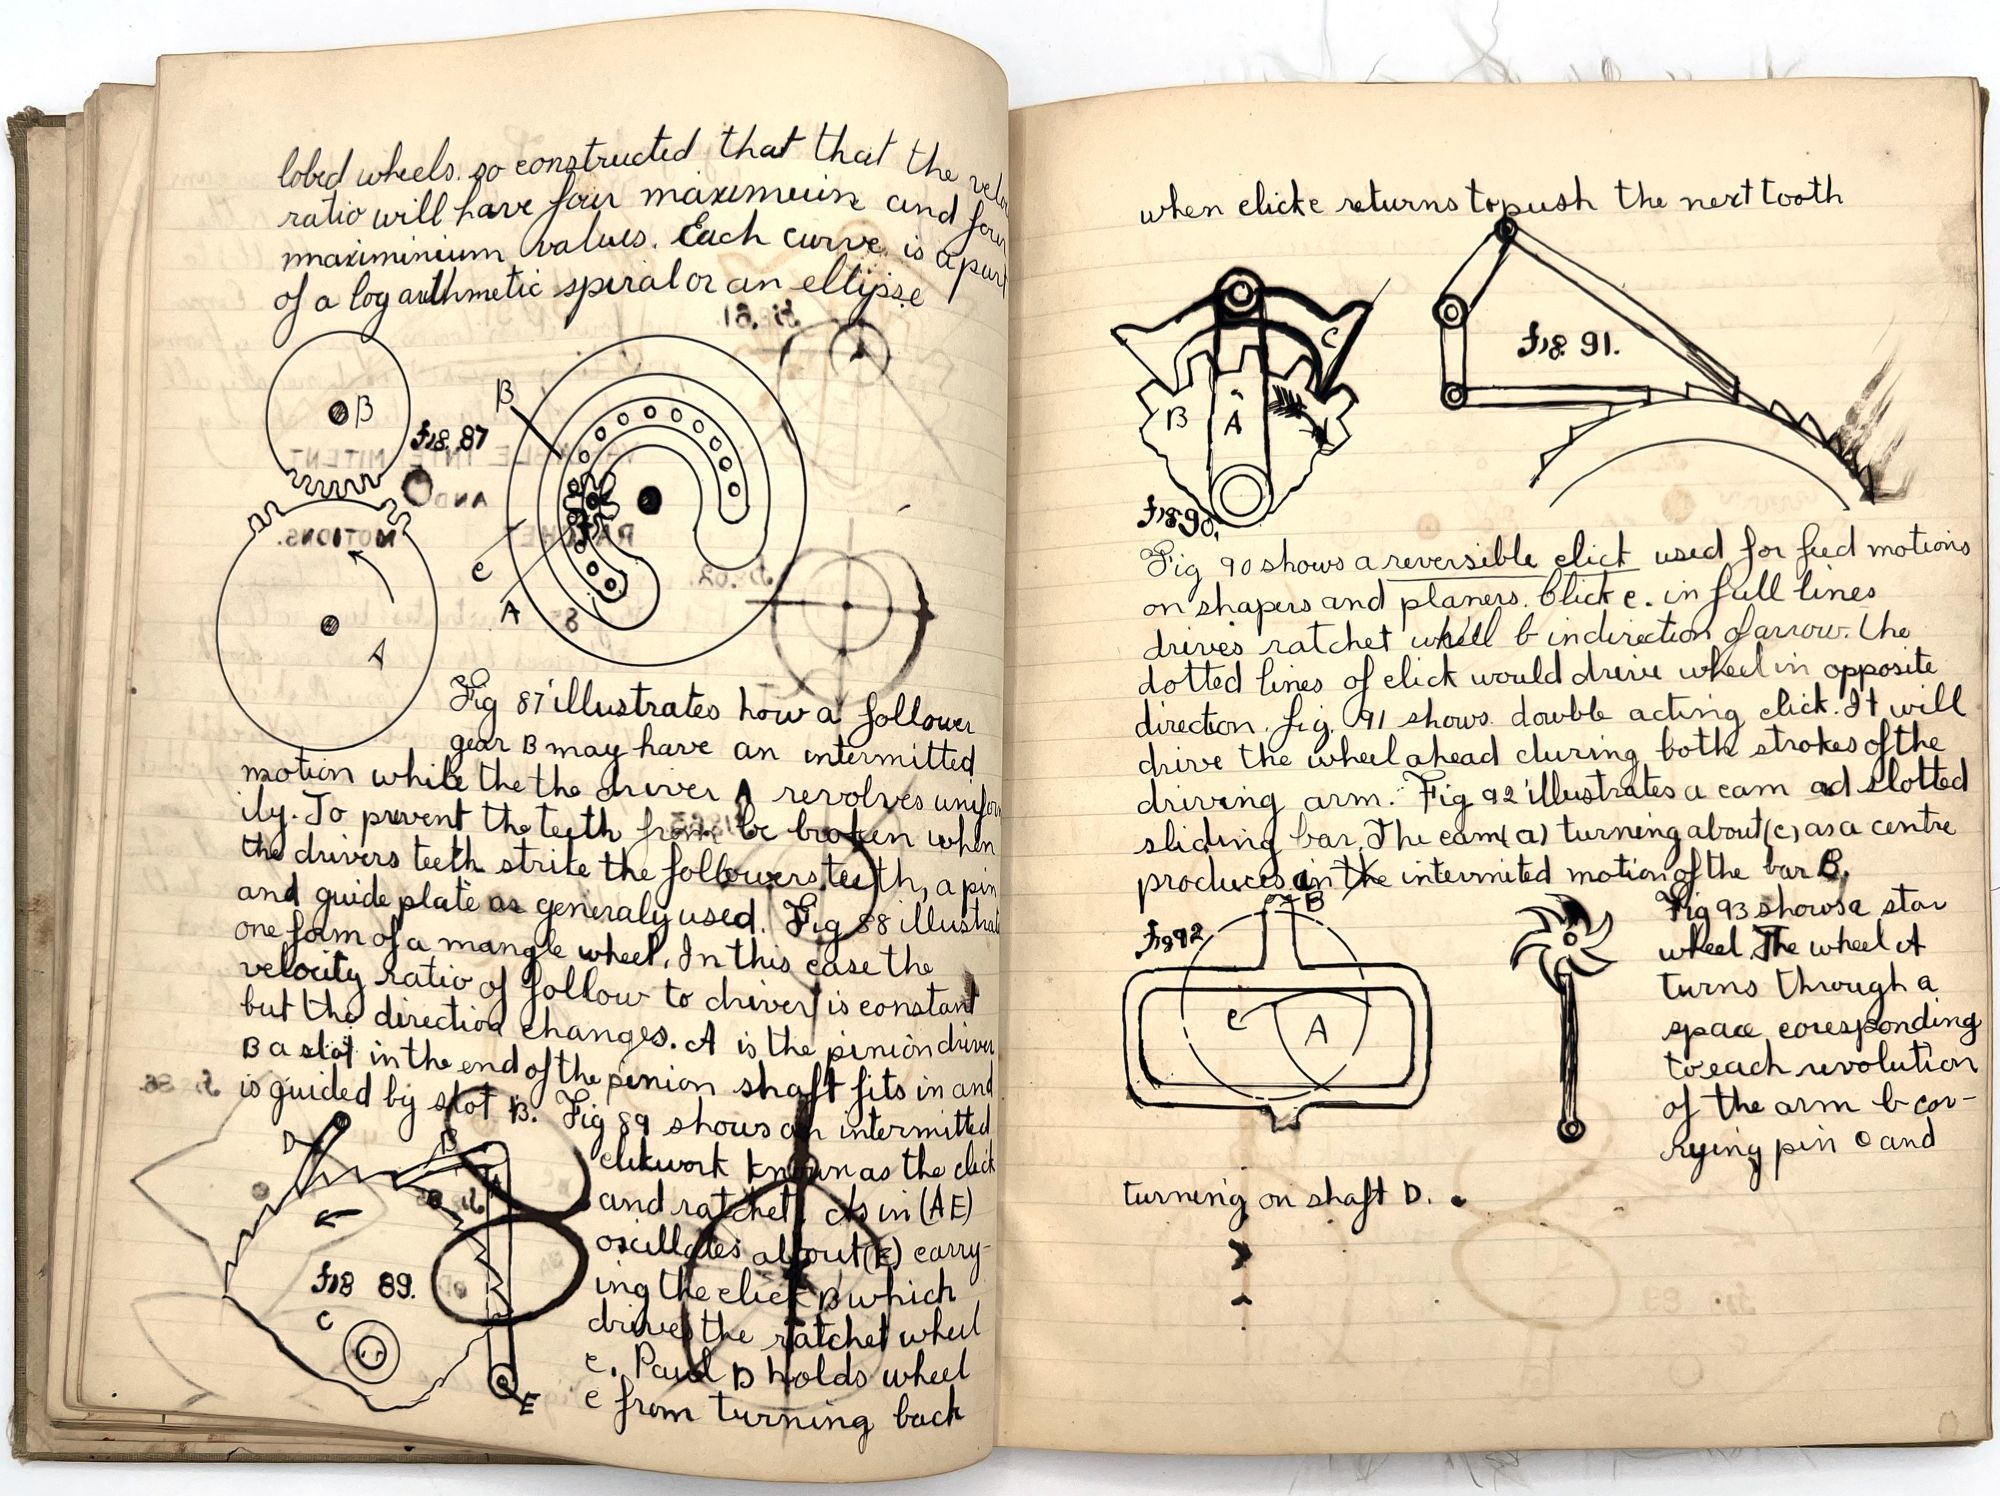 lobed wheels. so constructed that that the velo
ratio will have four maximum and four
mnaximinium values. Each curve is a part
of a logarithmetic spiral or an ellipse
B
Fig. 87
B
C
A
A
Fig 87 illustrates how a follower
gear B may have an intermitted
motion while the the driver A revolves unifor
ily. To prevent the teeth from be broken when
the drivers teeth strike the followers teeth, a pin
and guide plate as generaly used. Fig 88 illustrat
one form of a mangle wheel. In this case the
velocity ratio of follow to driver is constant
but the direction changes. A is the pinion driver
B a slot in the end of the pinion shaft fits in and
is guided by slot B. Fig 89 shows an intermitted
clickwork known as the click
and ratchet. As in (AE)
oscillates about (E) carry-
ing the click B which
drives the ratchet wheel
c. Paul D holds wheel
c from turning back
D
B
Fig 89.
C
E
when click c returns to push the next tooth
C
B
A
Fig 90.
Fig. 91.
Fig 90 shows a reversible click used for feed motions
on shapers and planers. Click c. in full lines
drives ratchet wheel b in direction of arrow. The
dotted lines of click would drive wheel in opposite
direction. fig. 91 shows double acting click. It will
drive the wheel ahead during both strokes of the
driving arm. Fig 92 illustrates a cam ad slotted
sliding bar. The cam (a) turning about (c) as a centre
produces an the intermited motion of the bar B.
B
Fig 92
C
A
Fig 93 shows a star
wheel. The wheel A
turns through a
space coresponding
to each revolution
of the arm b car-
rying pin C and
turning on shaft D.